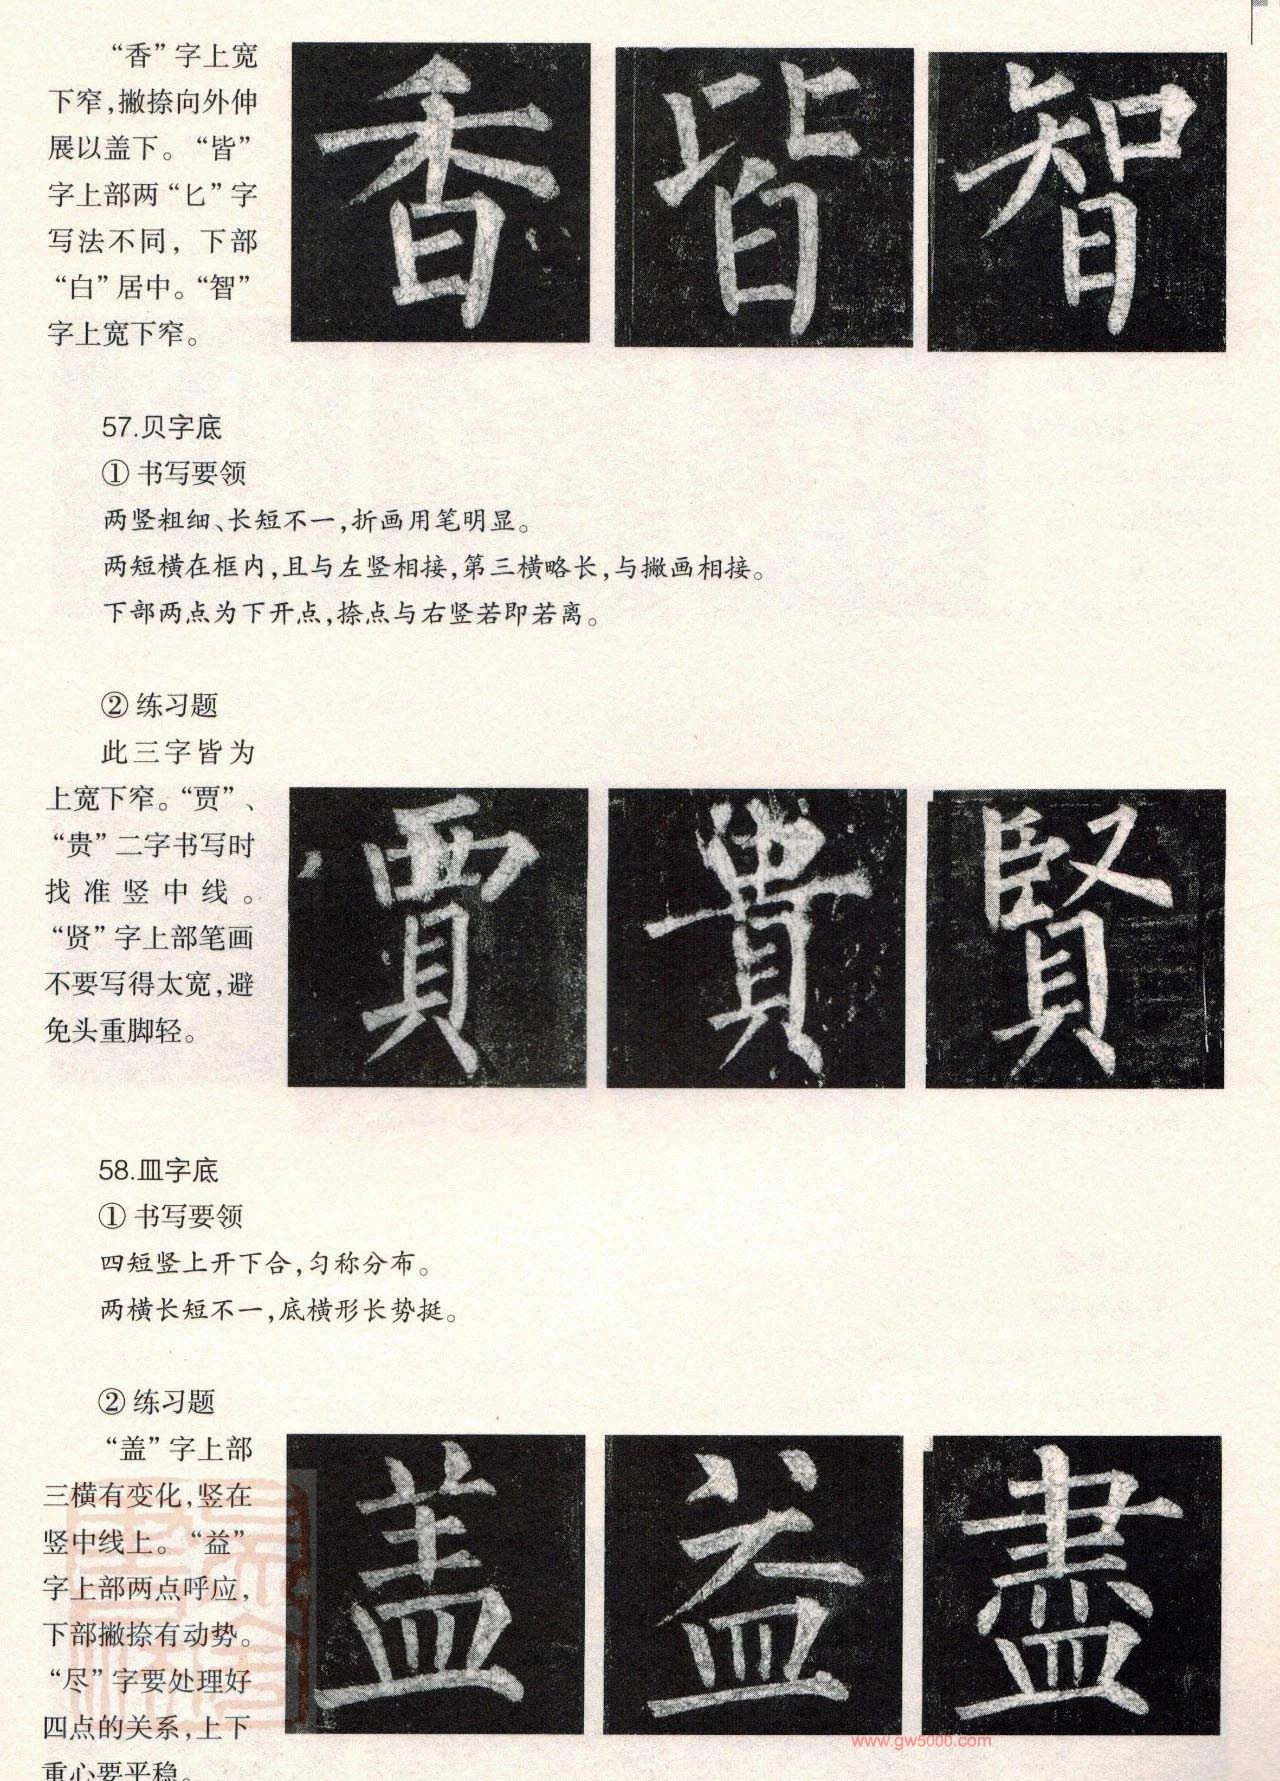 “香”字上宽
下窄，撇捺向外伸
展以盖下。“皆”
字上部两“匕”字
写法不同，下部
“白”居中。“智”
字上宽下窄。
香 皆 智
57.贝字底
① 书写要领
两竖粗细、长短不一，折画用笔明显。
两短横在框内，且与左竖相接，第三横略长，与撇画相接。
下部两点为下开点，捺点与右竖若即若离。
② 练习题
此三字皆为
上宽下窄。“贾”、
“贵”二字书写时
找准竖中线。
“贤”字上部笔画
不要写得太宽，避
免头重脚轻。
賈 貴 賢
58.皿字底
① 书写要领
四短竖上开下合，匀称分布。
两横长短不一，底横形长势挺。
② 练习题
“盖”字上部
三横有变化，竖在
竖中线上。“益”
字上部两点呼应，
下部撇捺有动势。
“尽”字要处理好
四点的关系，上下
重心要平稳。
盖 益 盡
www.gw5000.com